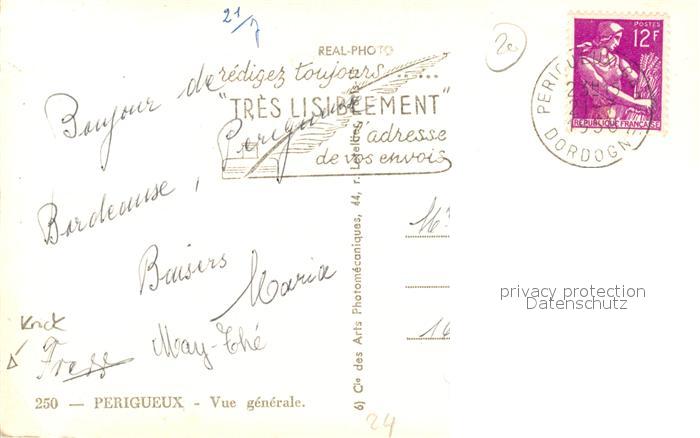 21/7
2e
POSTES
12F
REPUBLIQUE FRANÇAISE
PERIGUEUX
21-7
DORDOGNE
REAL-PHOTO
rédigez toujours ......
"TRÈS LISIBLEMENT"
l'adresse
de vos envois
Bonjour de
Perigueux
Bordeause,
Baisers
Maria
May-Thé
Knick
250 — PERIGUEUX - Vue générale.
6) Cie des Arts Photomécaniques, 44, r. Letellier, Paris
16
24
privacy protection
Datenschutz